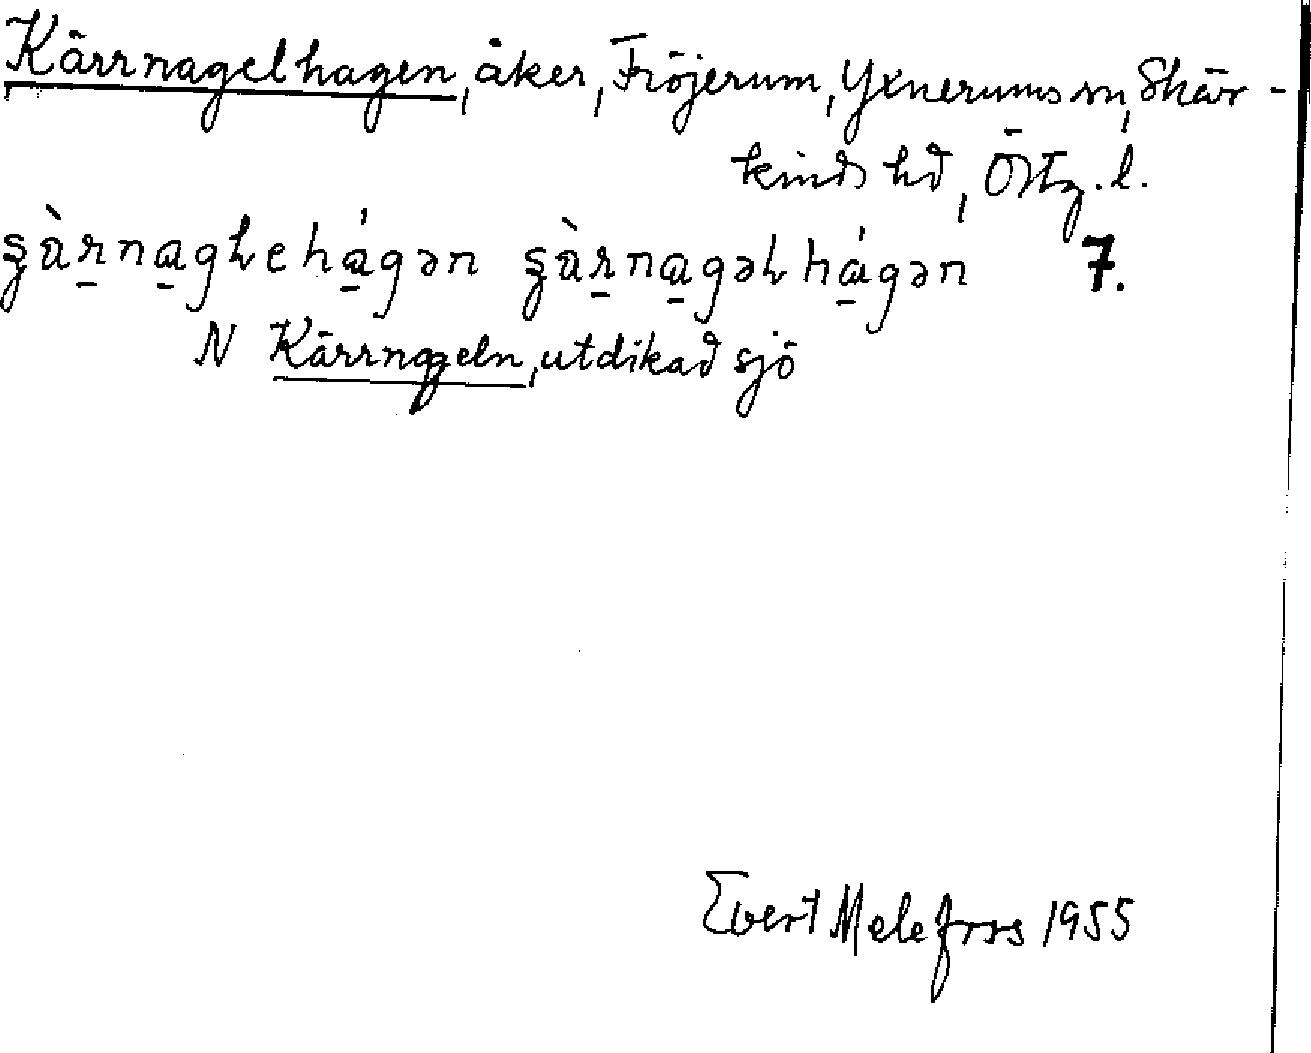 Kärrnagelhagen, åker, Fröjerum, Yxnerums sn, Skär-
kinds hd, Östg. l.
ʂàr̠na̠gɫehá̠gən ʂàr̠na̠gəɫhá̠gən 7.
N Kärrnageln, utdikad sjö
Evert Melefors 1955